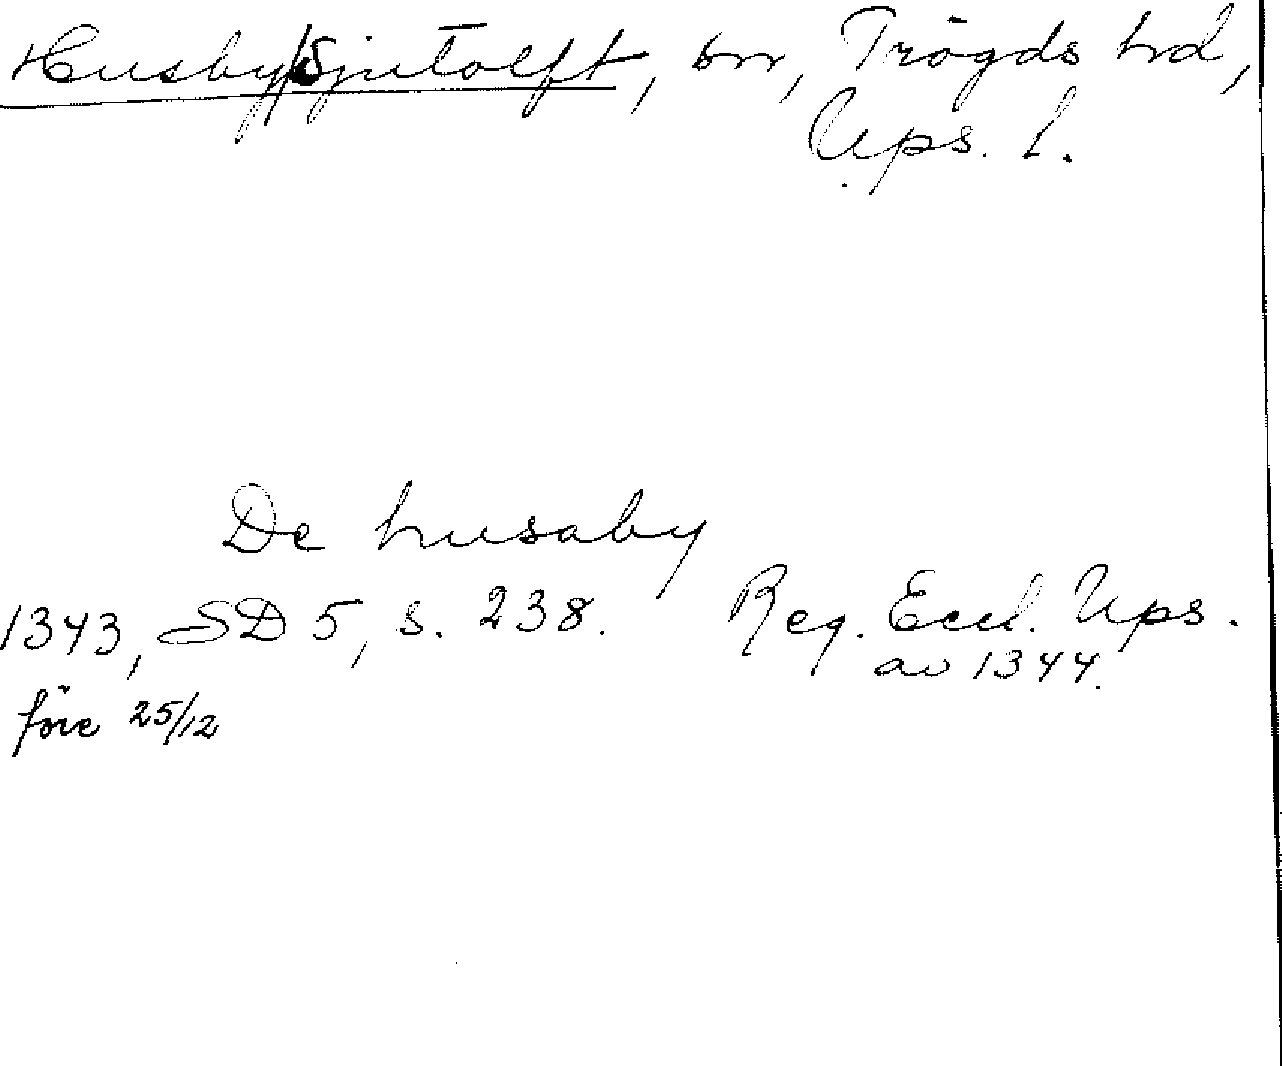 Husby-Sjutolft, sn, Trögds hd,
Ups. l.
De husaby
1343, SD 5, s. 238. Reg. Eccl. Ups.
av 1344.
före 25/12